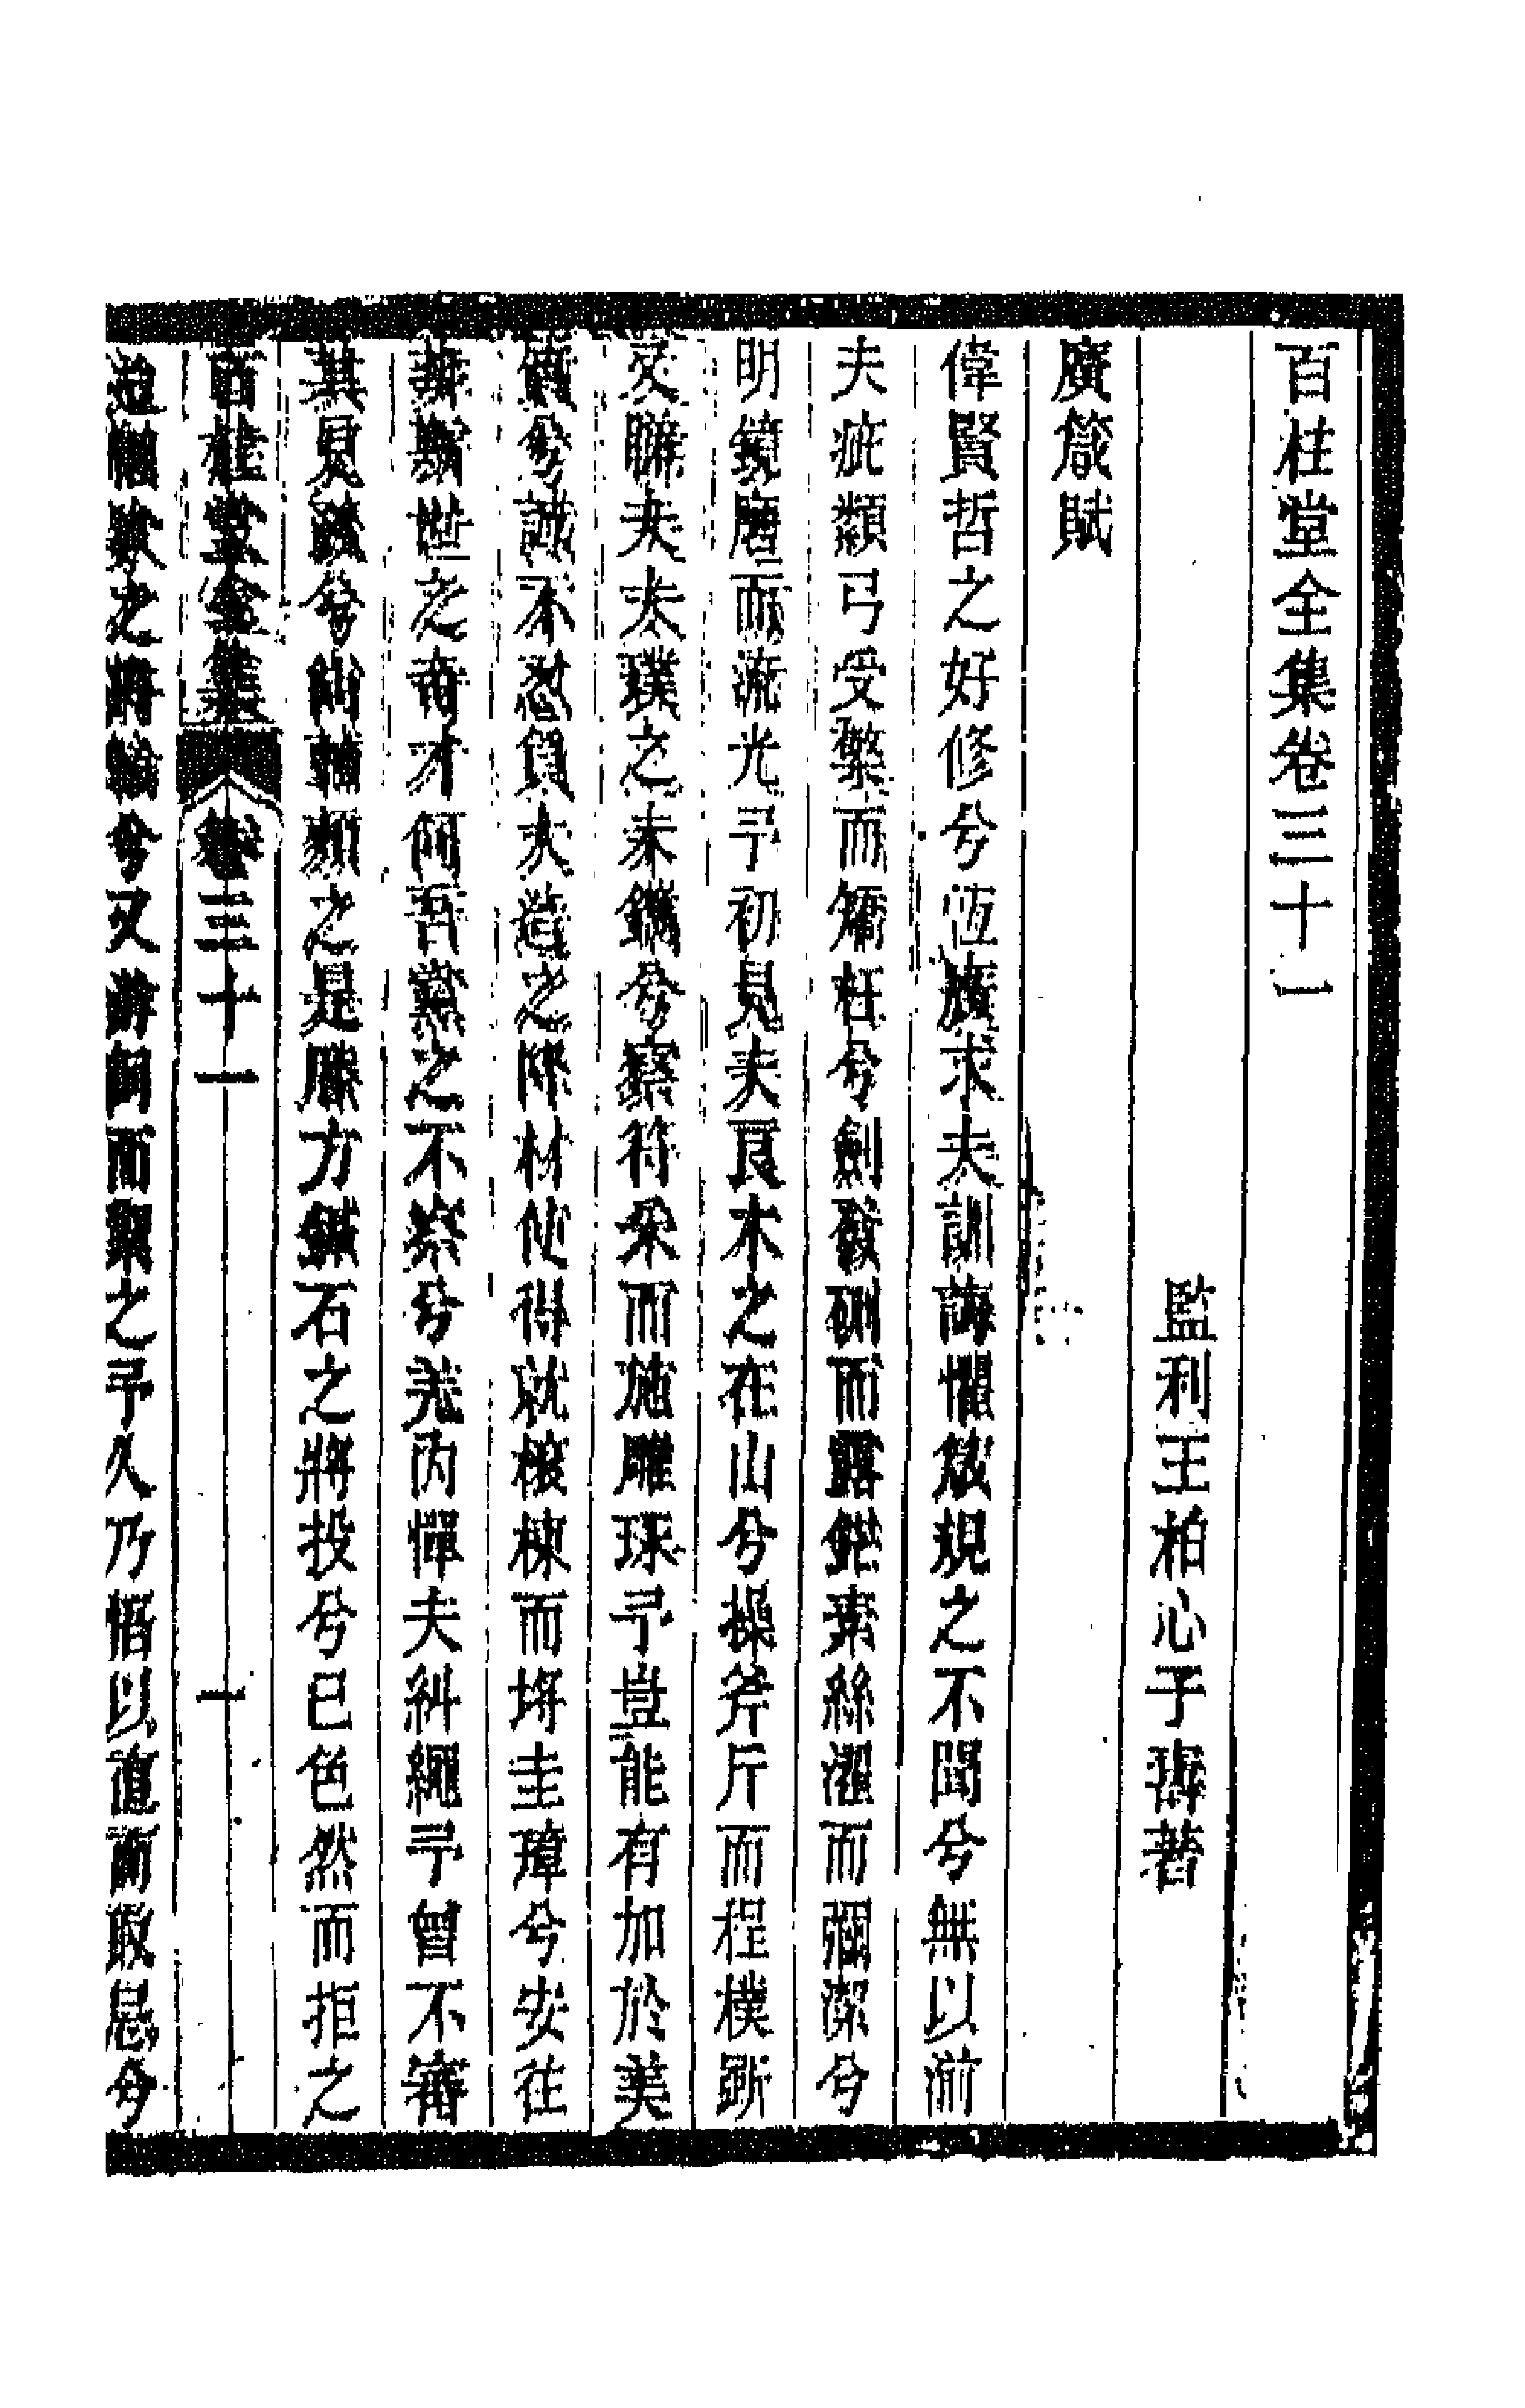 百柱堂全集卷三十一
監利王柏心子壽著
廣箴賦
偉賢哲之好修兮恆廣求夫訓誨懼箴規之不聞兮無以湔
夫疵纇弓受檠而矯枉兮劍發硎而露鋩素絲濯而彌潔兮
明鏡磨而流光予初見夫良木之在山兮操斧斤而程樸斲
爰睇夫夫璞之未鐫兮察符采而施雕琢予豈能有加於美
質兮誠不忍負大造之降材使得就榱棟而埒圭璋兮安往
非斯世之奇才何吾黨之不察兮羌內憚夫糾繩予曾不審
其見疏兮尚輔頰之是勝方鍼石之將投兮已色然而拒之
百柱堂全集 卷三十一 一
進欵之將輸兮又而之予久乃悟以直而取忌兮